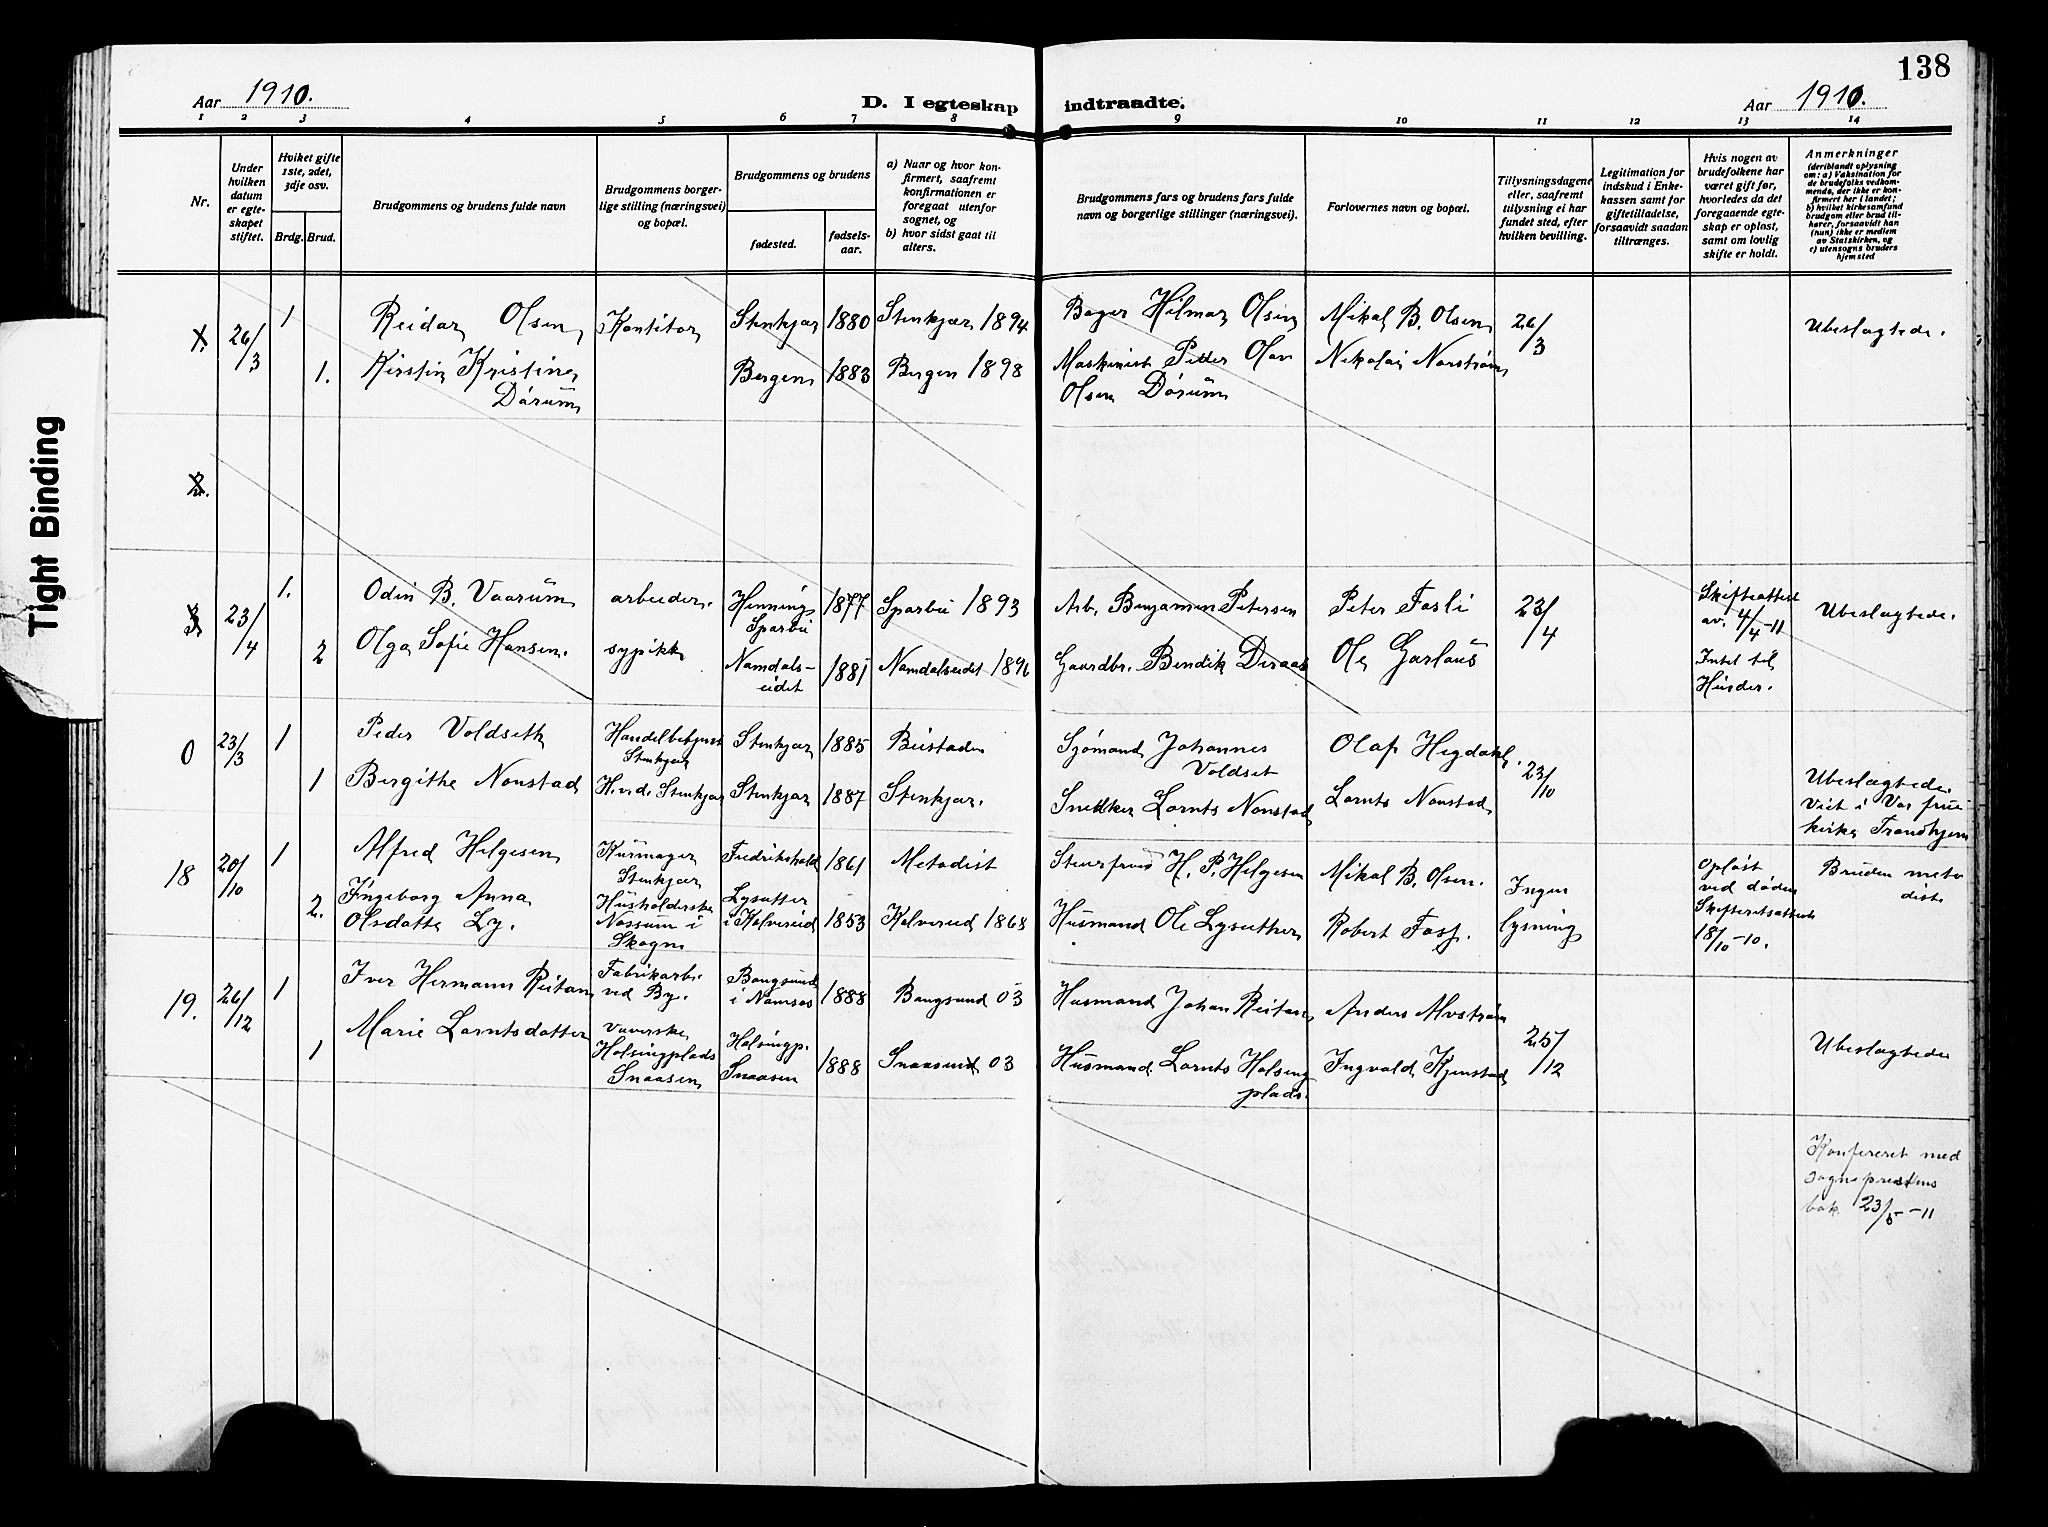 Tight Binding
138
Aar 1910.
D. I egteskap indtraadte.
Aar 1910.
1 2 3 4 5 6 7 8 9 10 11 12 13 14
Nr.
Under hvilken datum er egte-skapet stiftet.
Hviket gifte 1ste, 2det, 3dje osv.
Brdg. Brud.
Brudgommens og brudens fulde navn
Brudgommens borger-lige stilling (næringsvei) og bopæl.
Brudgommens og brudens
fødested.
fødsels-aar.
a) Naar og hvor kon-firmert, saafremt konfirmationen er foregaat utenfor sognet, og
b) hvor sidst gaat til alters.
Brudgommens fars og brudens fars fulde navn og borgerlige stillinger (næringsvei).
Forlovernes navn og bopæl.
Tillysningsdagene eller, saafremt tillysning ei har fundet sted, efter hvilken bevilling.
Legitimation for indskud i Enke-kassen samt for giftetilladelse, forsaavidt saadan tiltrænges.
Hvis nogen av brudefolkene har været gift før, hvorledes da det foregaaende egte-skap er opløst, samt om lovlig skifte er holdt.
Anmerkninger
(deriblandt oplysning om: a) Vaksination for de brudefolks vedkom-mende, der ikke er kon-firmert her i landet; b) hvilket kirkesamfund brudgom eller brud til-hører, forsaavidt han (hun) ikke er medlem av Statskirken, og c) utensogns bruders hjemsted
1. 26/3 1 Reidar Olsen Kontitor Stenkjær 1880 Stenkjær 1894 Bager Hilmar Olsen Mikal B. Olsen 26/3 Ubeslægtede.
1. Kirstin Kristine Dørum Bergen 1883 Bergen 1898 Maskinist Petter Olav Olsen Dørum Nikolai Norstrøm
2.
3 23/4 1. Odin B. Vaarum arbeider. Henning Sparbu 1877 Sparbu 1893 Arb. Benjamin Petersen Peter Fosli 23/4 Skifteattest av. 4/4-11 Intet til Hinder. Ubeslægtede.
2 Olga Sofie Hansen. sypike Namdals-eidet 1881 Namdalseidet 1896 Gaardbr. Bendik Deraas Ole Garlaus
0 23/3 1 Peder Voldseth Handelbetjent Stenkjær Stenkjær 1885 Beistaden Sjømand Johannes Voldset Olaf Hegdahl. 23/10
1 Bergithe Nonstad H.v.d. Stenkjær Stenkjær 1887 Stenkjær. Snedker Lornts Nonstad Lornts Nonstad Ubeslægtede. Viet i Vor frue kirke Trondhjem
18 20/10 1 Alfred Helgesen Kurmager Stenkjær Fredrikshald 1861 Metodist H. P. Helgesen Mikal B. Olsen. Ingen lysning Opløst ved døden Skifteretsattest 18/10-10. Bruden metodist
2. Ingeborg Anna Olsdatter Ly. Husholderske Nossum i Skogn Lysætter i Kolvereid 1853 Kolvereid 1868 Husmand Ole Lysætter Robert Fosf.
19. 26/12 1 Iver Hermann Reitan Fabrikarb. ved By. Bangsund i Namsos 1888 Bangsund 03 Husmand Johan Reitan Anders Alvstrøm 25/12 Ubeslægtede
1 Marie Lorntsdatter Væverske Halsingplads Snaasen Halsingp. Snaasen 1888 Snaasen 03 Husmand Lornts Halsing plads. Ingvald Kjenstad
Konfereret med sogneprestens bok 23/5-11